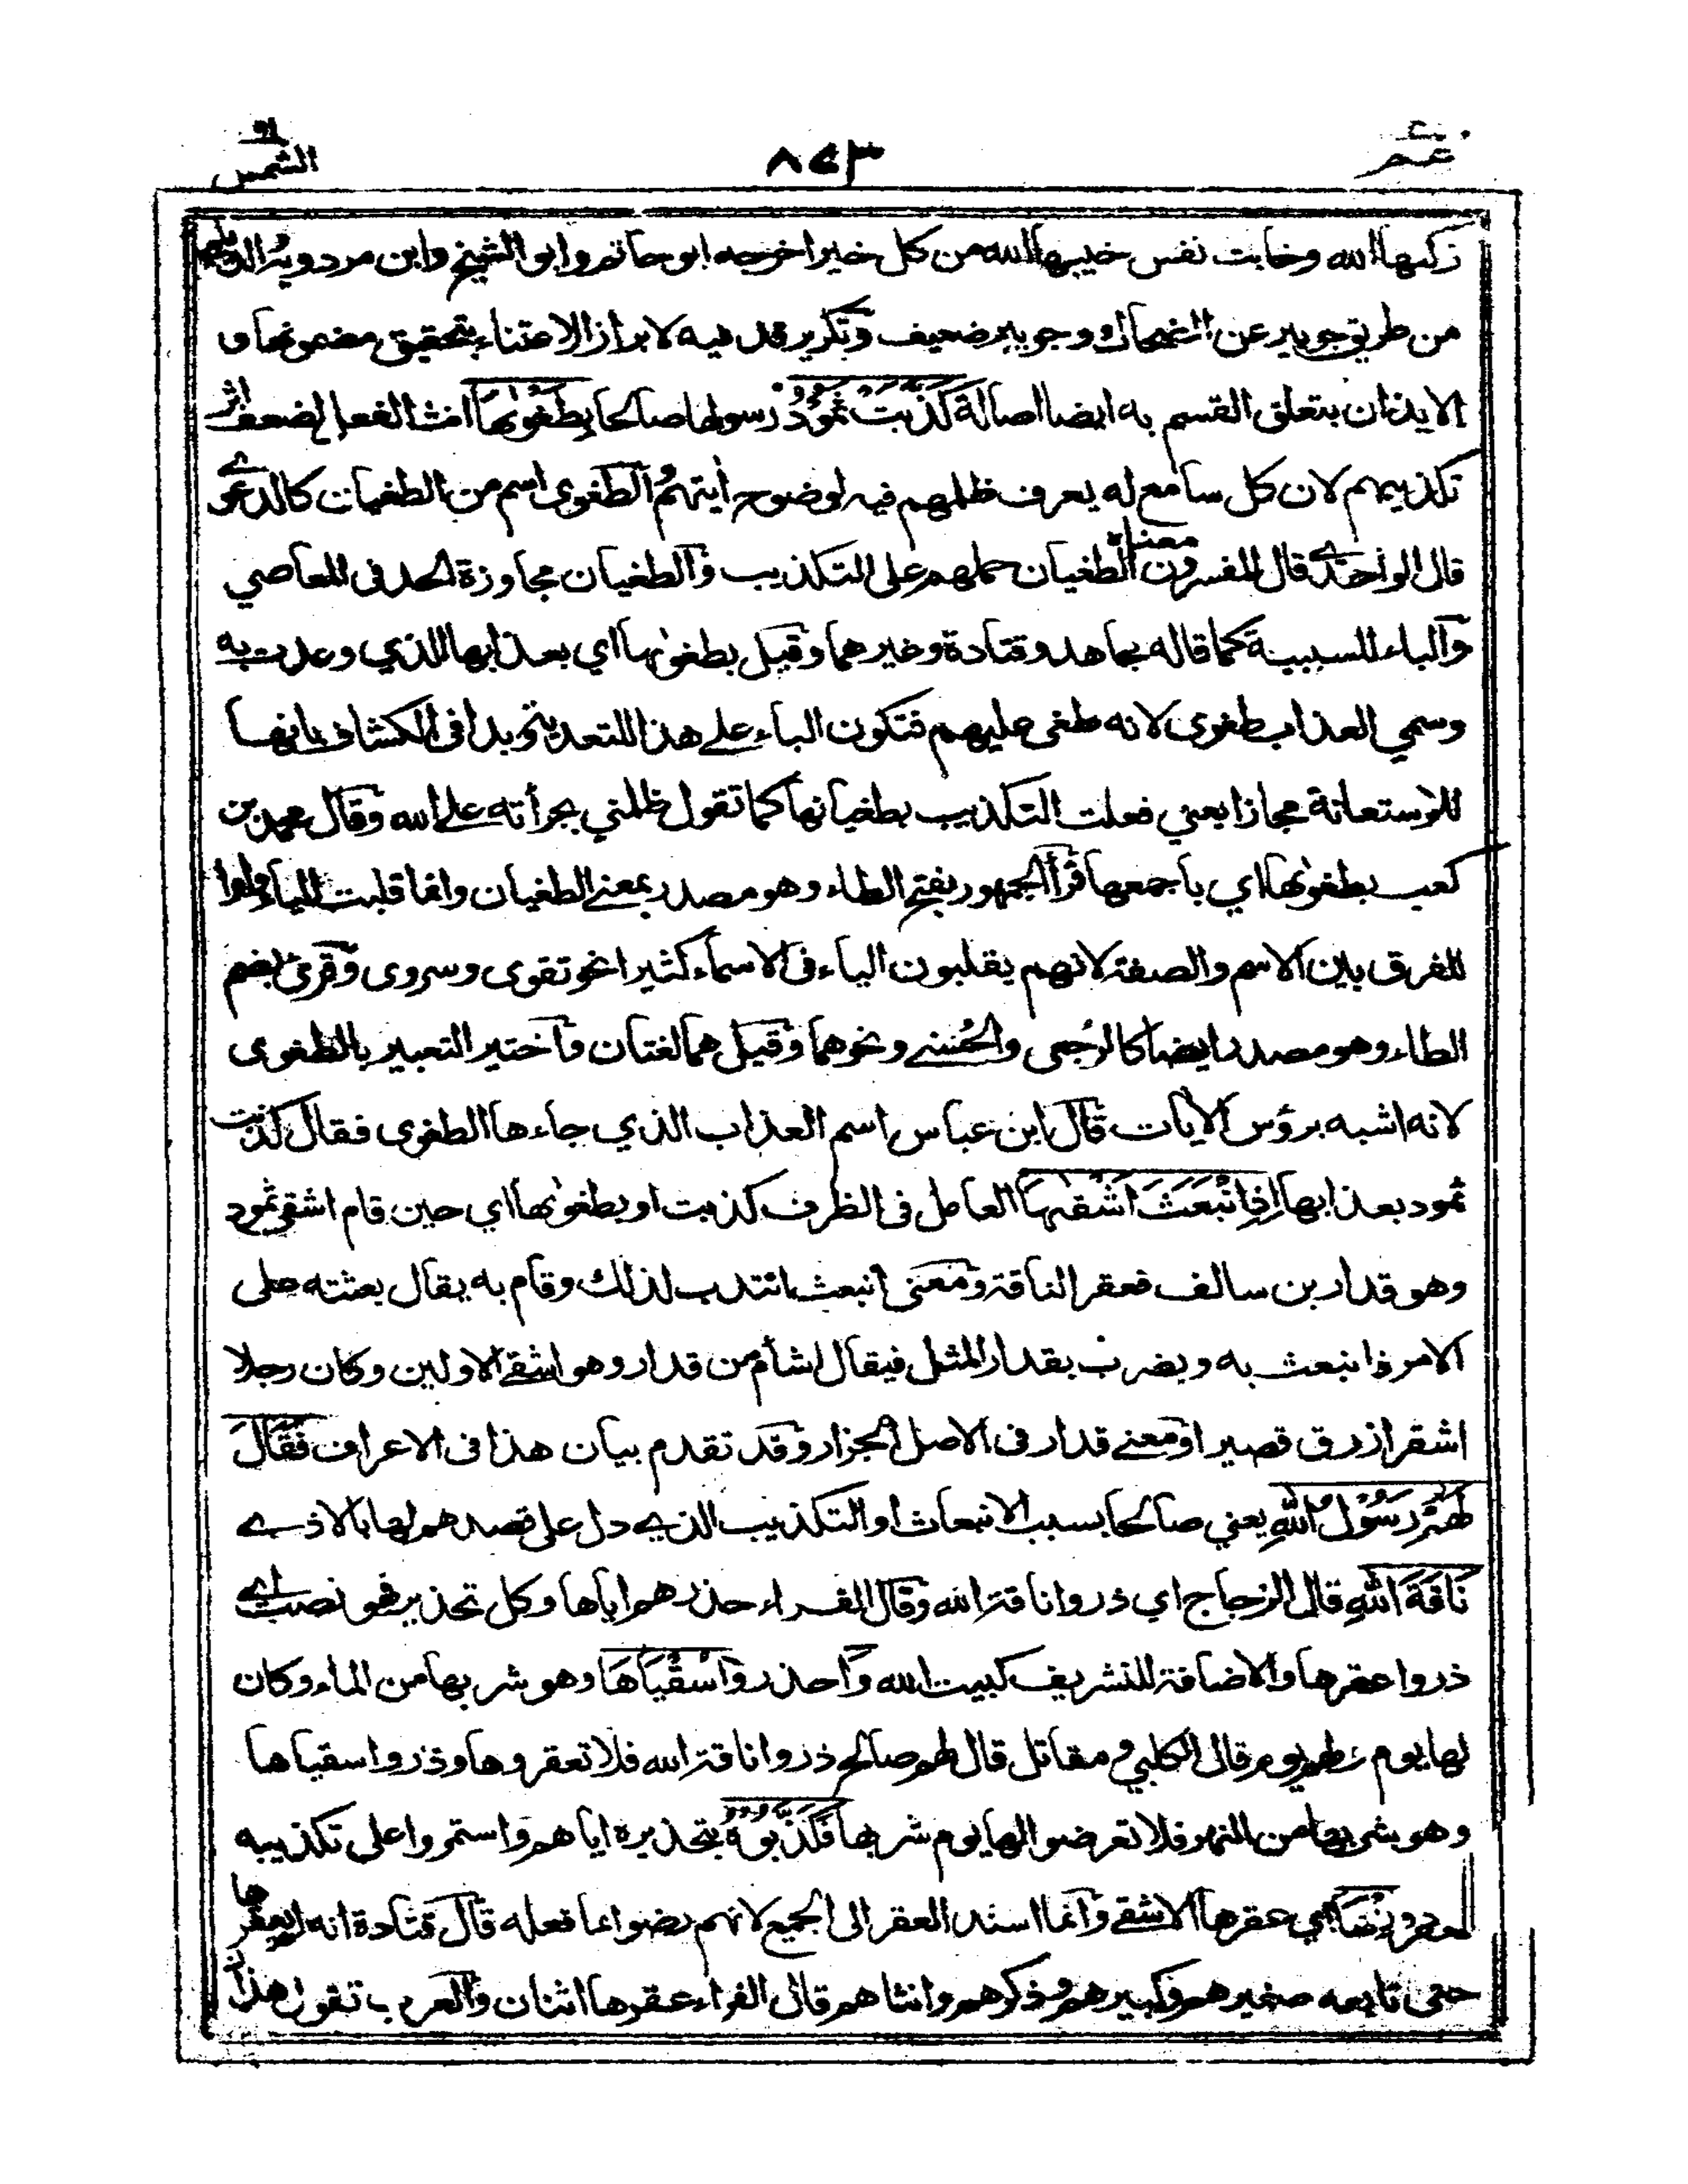 عـم
٨٤٣
الشمس ٩١
زكىها الله وخابت نفس خيبها الله من كل خير اخرجه ابو حاتم وابو الشيخ وابن مردويه والديلمي
من طريق جويبر عن الضحاك وجويبر ضعيف وتكرير قد فيه لابراز الاعتناء بتحقيق مضمونها و
الايذان بتعلق القسم به ايضا اصالة كَذَّبَتْ ثَمُوْدُ رسولها صالحا بِطَغْوٰىهَا انث الفعل لضعف اثر
تكذيبهم لان كل سامع له يعرف ظلمهم فيه لوضوح أيتهم والطغوى اسم من الطغيان كالدعوى
قال الواحدي قال المفسرون معناه الطغيان حملهم على التكذيب والطغيان مجاوزة الحد فى المعاصي
والباء للسببية كما قاله مجاهد وقتادة وغيرهما وقيل بطغوٰىها اي بعذابها الذي وعدت به
وسمي العذاب طغوى لانه طغى عليهم فتكون الباء على هذا للتعدية وبدا فى الكشاف بانها
للاستعانة مجازا يعني فعلت التكذيب بطغيانها كما تقول ظلمني بجرأته على الله وقال محمد بن
كعب بطغوٰىها اي باجمعها قرأ الجمهور بفتح الطاء وهو مصدر بمعنى الطغيان وانما قلبت الياء واوا
للفرق بين الاسم والصفة لانهم يقلبون الياء فى الاسماء كثيرا نحو تقوى وسروى وقرئ بضم
الطاء وهو مصدر ايضا كالرُجعى والحُسنى ونحوهما وقيل هما لغتان واختير التعبير بالطغوى
لانه اشبه برؤس الأيات قال ابن عباس اسم العذاب الذي جاءها الطغوى فقال كذبت
ثمود بعذابها اِذِ انْبَعَثَ اَشْقٰىهَا العامل فى الظرف كذبت او بطغوٰىها اي حين قام اشقى ثمود
وهو قدار بن سالف فعقر الناقة ومعنى انبعث انتدب لذلك وقام به يقال بعثته على
الامر فانبعث به ويضرب بقدار المثل فيقال اشأم من قدار وهو اشقى الاولين وكان رجلا
اشقر ازرق قصيرا ومعنى قدار فى الاصل الجزار وقد تقدم بيان هذا فى الاعراف فَقَالَ
لَهُمْ رَسُوْلُ اللّٰهِ يعني صالحا بسبب الانبعاث او التكذيب الذي دل على قصدهم لها بالاذى
نَاقَةَ اللّٰهِ قال الزجاج اي ذروا ناقة الله وقال الفراء حذرهم اياها وكل تحذير فهو نصب اي
ذروا عقرها والاضافة للتشريف كبيت الله واحذروا سُقْيَاهَا وهو شربها من الماء وكان
لها يوم ولهم يوم قال الكلبي ومقاتل قال لهم صالح ذروا ناقة الله فلا تعقروها وذروا سقياها
وهو شربها من النهر فلا تعرضوا لها يوم شربها فَكَذَّبُوْهُ بتحذيره اياهم واستمروا على تكذيبه
فعقروها اي عقرها الاشقى وانما اسند العقر الى الجميع لانهم رضوا بما فعله قال قتادة انه لم يعقرها
حتى تابعه صغيرهم وكبيرهم وذكرهم وانثاهم قال الفراء عقرها اثنان والعرب تقول هذان